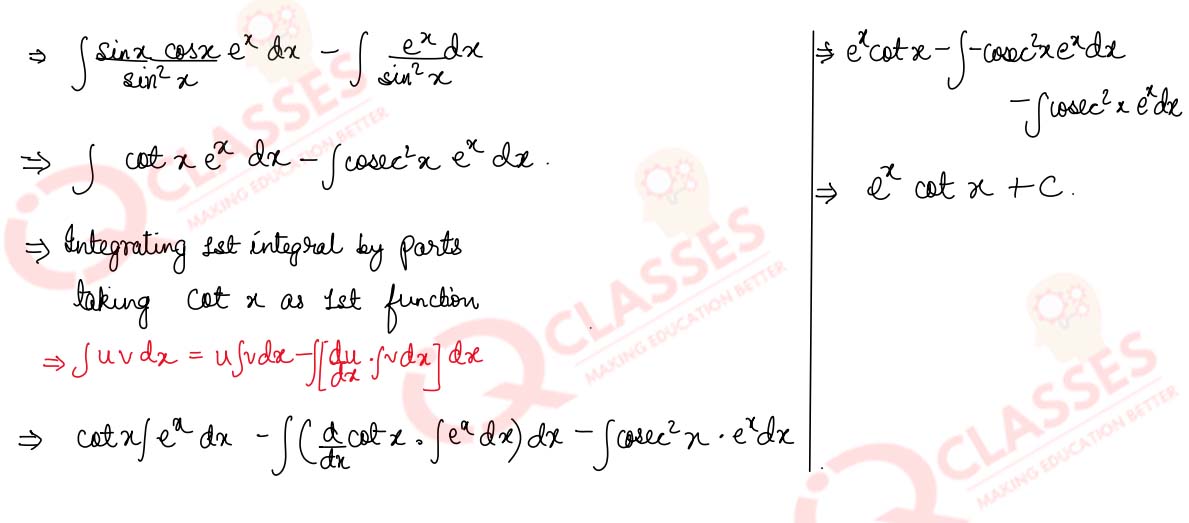 ⇒ ∫ sinx cosx / sin²x eˣ dx − ∫ eˣ dx / sin²x
⇒ ∫ cot x eˣ dx − ∫ cosec²x eˣ dx.
⇒ Integrating 1st integral by parts
taking cot x as 1st function
⇒ ∫ u v dx = u ∫v dx − ∫[du/dx · ∫v dx] dx
⇒ cot x ∫ eˣ dx − ∫(d/dx cot x · ∫eˣ dx) dx − ∫cosec²x · eˣ dx
⇒ eˣ cot x − ∫−cosec²x eˣ dx
− ∫cosec²x eˣ dx
⇒ eˣ cot x + C.
IQ CLASSES
MAKING EDUCATION BETTER
IQ CLASSES
MAKING EDUCATION BETTER
IQ CLASSES
MAKING EDUCATION BETTER